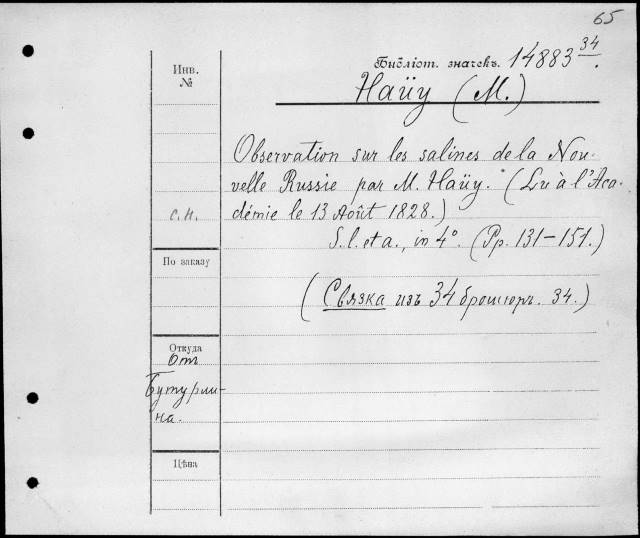 65
Инв.
№
Библіот. значекъ. 14883 34.
Haüy (M.)
Observation sur les salines de la Nou-
velle Russie par M. Haüy. (Lu à l'Aca-
démie le 13 Août 1828.)
с.н.
S. l. et a., in 4°. (Pp. 131-151.)
По заказу
(Связка изъ 34 брошюръ. 34.)
Откуда
Отъ
Бутурли-
на.
Цѣна